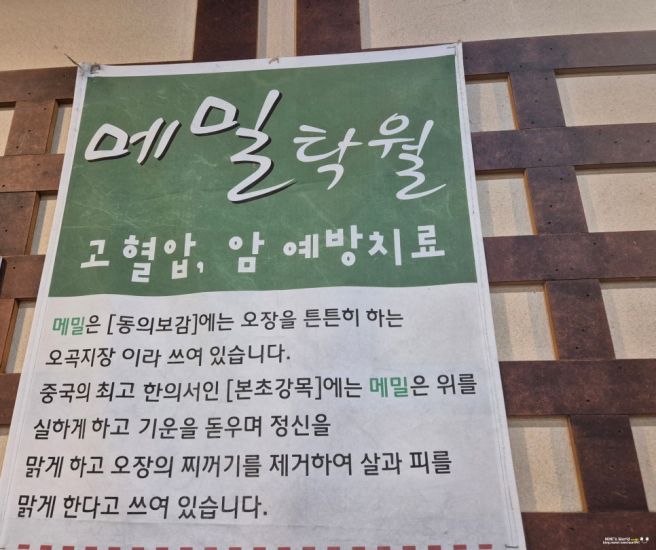 메밀탁월
고혈압, 암 예방치료
메밀은 [동의보감]에는 오장을 튼튼히 하는
오곡지장 이라 쓰여 있습니다.
중국의 최고 한의서인 [본초강목]에는 메밀은 위를
실하게 하고 기운을 돋우며 정신을
맑게 하고 오장의 찌꺼기를 제거하여 살과 피를
맑게 한다고 쓰여 있습니다.